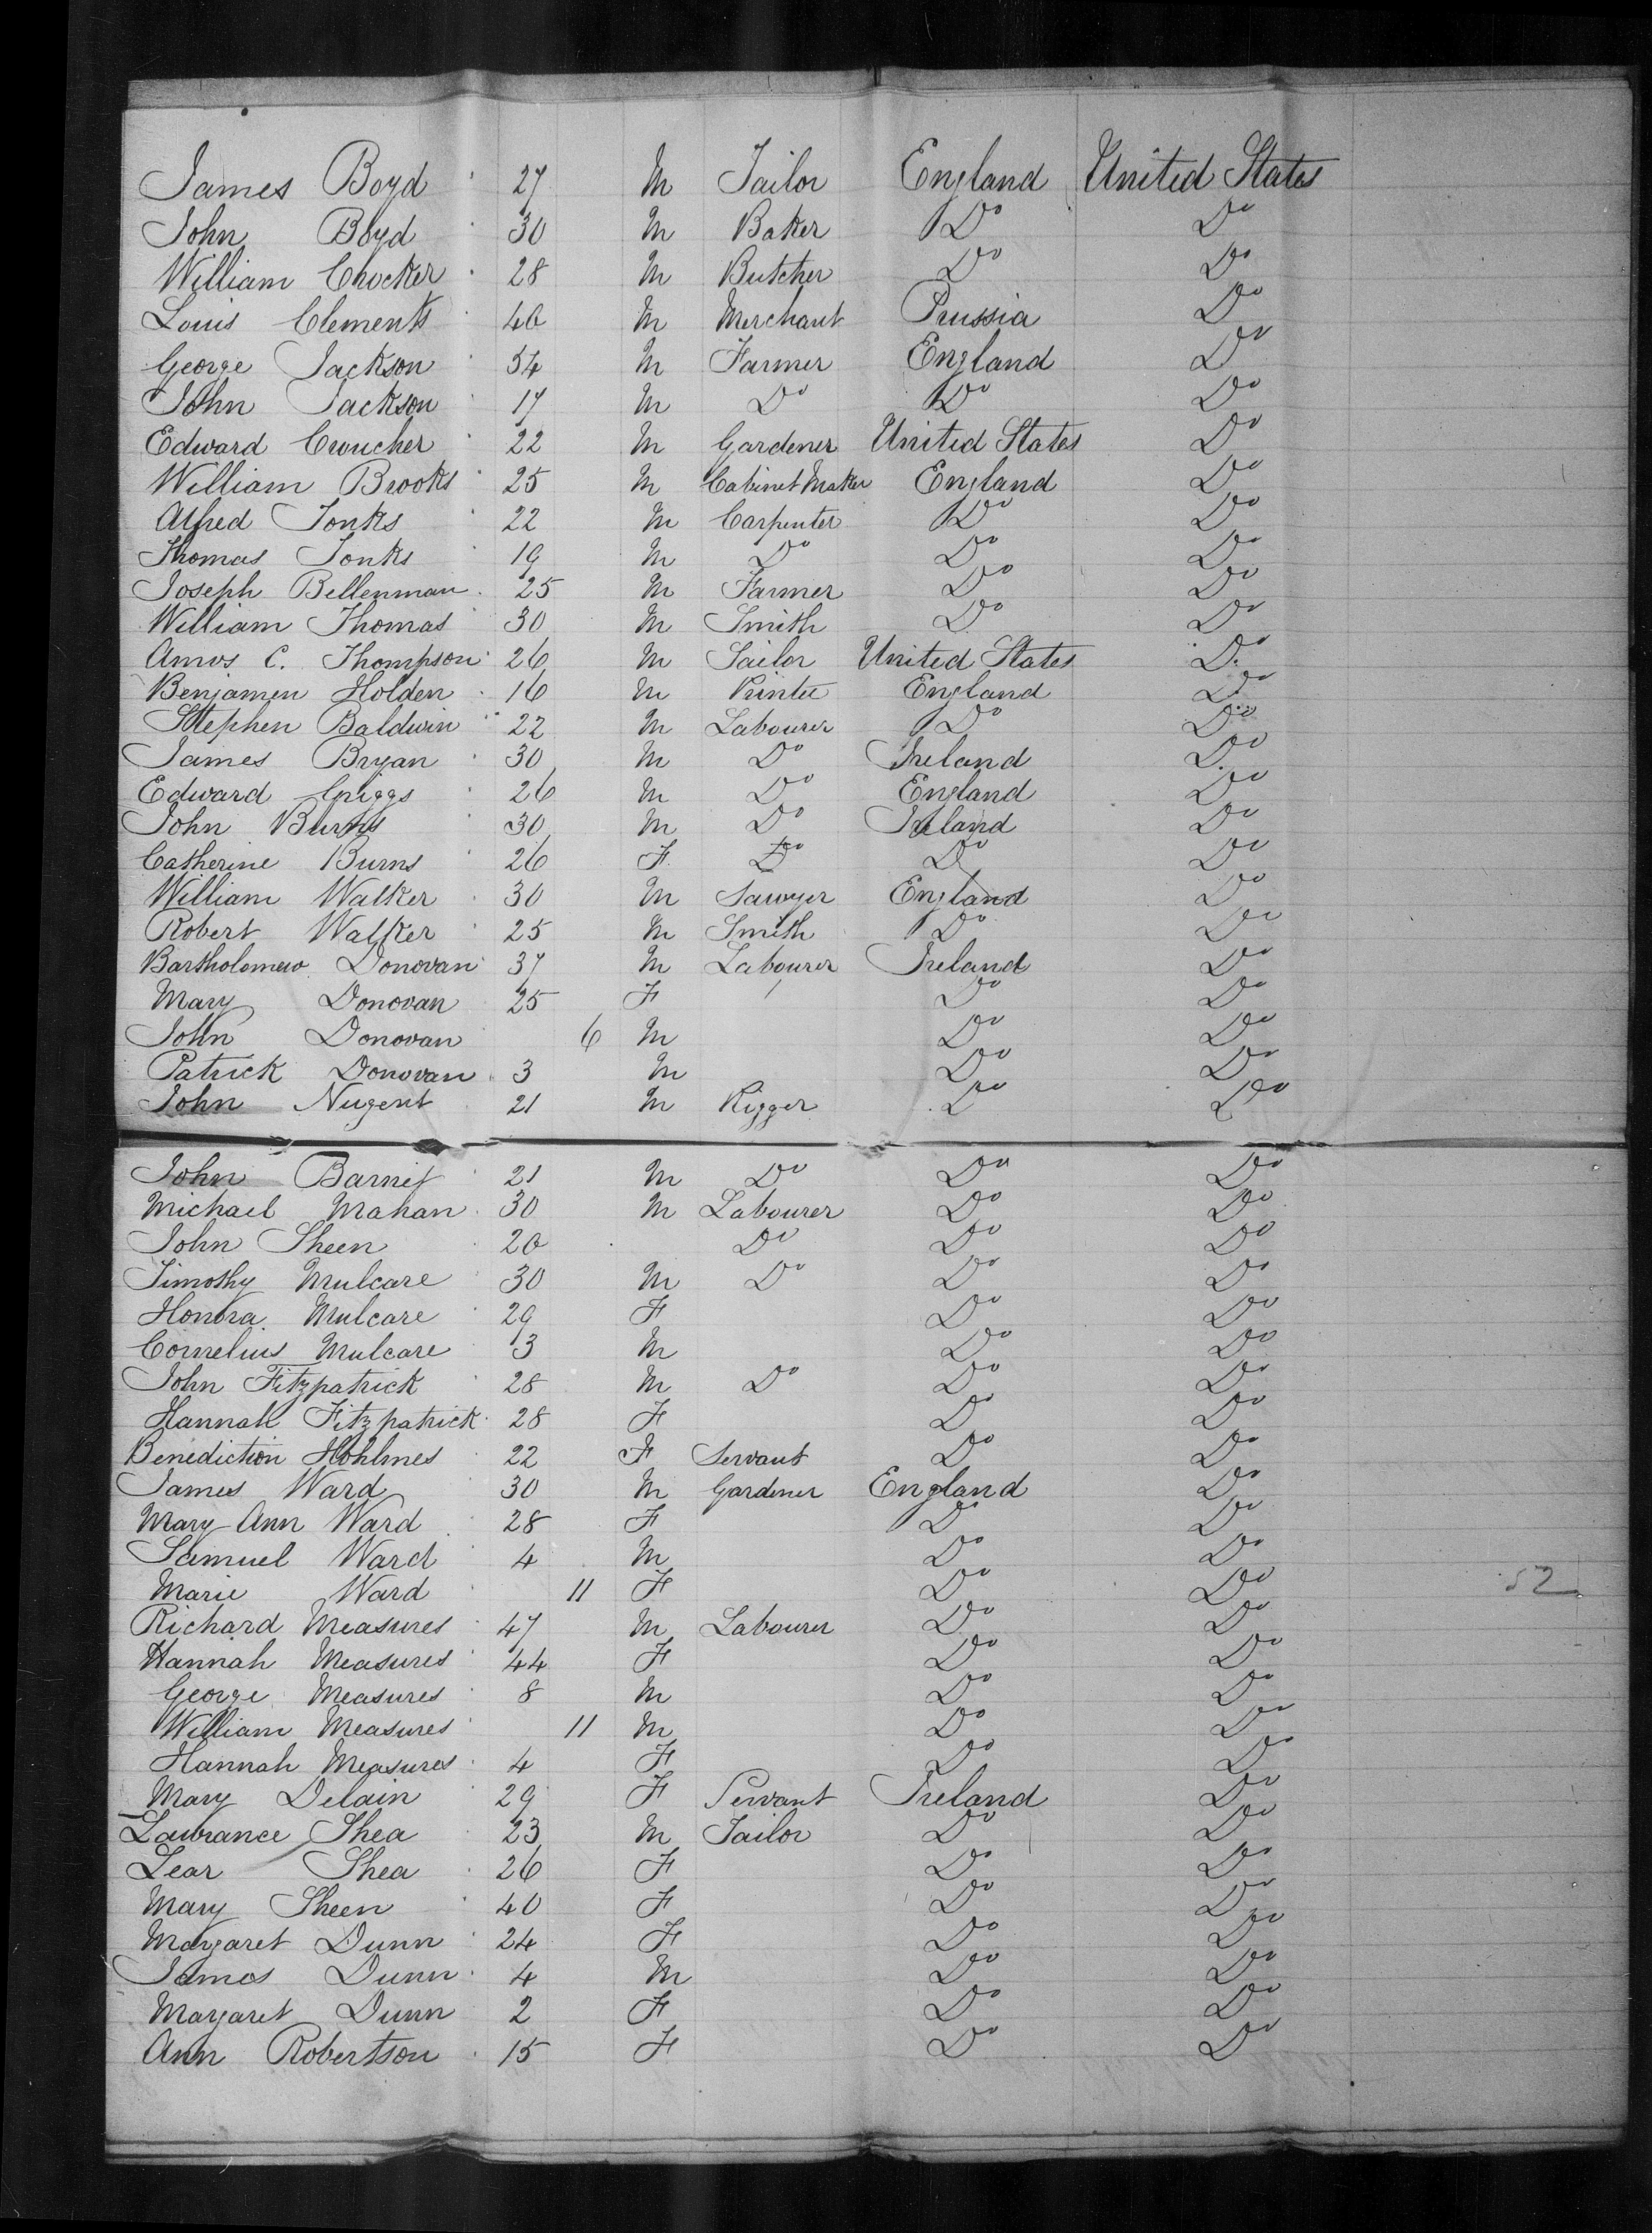 James Boyd 27 M Tailor England United States
John Boyd 30 M Baker Do Do
William Chocker 28 M Butcher Do Do
Louis Clements 40 M Merchant Prussia Do
George Jackson 54 M Farmer England Do
John Jackson 17 M Do Do Do
Edward Croucher 22 M Gardener United States Do
William Brooks 25 M Cabinet Maker England Do
Alfred Jonks 22 M Carpenter Do Do
Thomas Jonks 19 M Do Do Do
Joseph Bellenman 25 M Farmer Do Do
William Thomas 30 M Smith Do Do
Amos C. Thompson 26 M Sailor United States Do
Benjamen Holden 16 M Printer England Do
Stephen Baldwin 22 M Labourer Do Do
James Bryan 30 M Do Ireland Do
Edward Griggs 26 M Do England Do
John Burns 30 M Do Ireland Do
Catherine Burns 26 F Do Do Do
William Walker 30 M Sawyer England Do
Robert Walker 25 M Smith Do Do
Bartholomew Donovan 37 M Labourer Ireland Do
Mary Donovan 25 F Do Do
John Donovan 6 M Do Do
Patrick Donovan 3 M Do Do
John Nugent 21 M Rigger Do Do
John 21 M Do Do Do
Michael Mahan 30 M Labourer Do Do
John Sheen 20 Do Do Do
Timothy Mulcare 30 M Do Do Do
Honora Mulcare 29 F Do Do
Cornelius Mulcare 3 M Do Do
John Fitzpatrick 28 M Do Do Do
Hannah Fitzpatrick 28 F Do Do
Benediction Hohlmes 22 F Servant Do Do
James Ward 30 M Gardener England Do
Mary Ann Ward 28 F Do Do
Samuel Ward 4 M Do Do
Marie Ward 11 F Do Do 52
Richard Measures 47 M Labourer Do Do
Hannah Measures 44 F Do Do
George Measures 8 M Do Do
William Measures 11 M Do Do
Hannah Measures 4 F Do Do
Mary Delain 29 F Servant Ireland Do
Lawrance Shea 23 M Tailor Do Do
Lear Shea 26 F Do Do
Mary Sheen 40 F Do Do
Margaret Dunn 24 F Do Do
James Dunn 4 M Do Do
Margaret Dunn 2 F Do Do
Ann Robertson 15 F Do Do